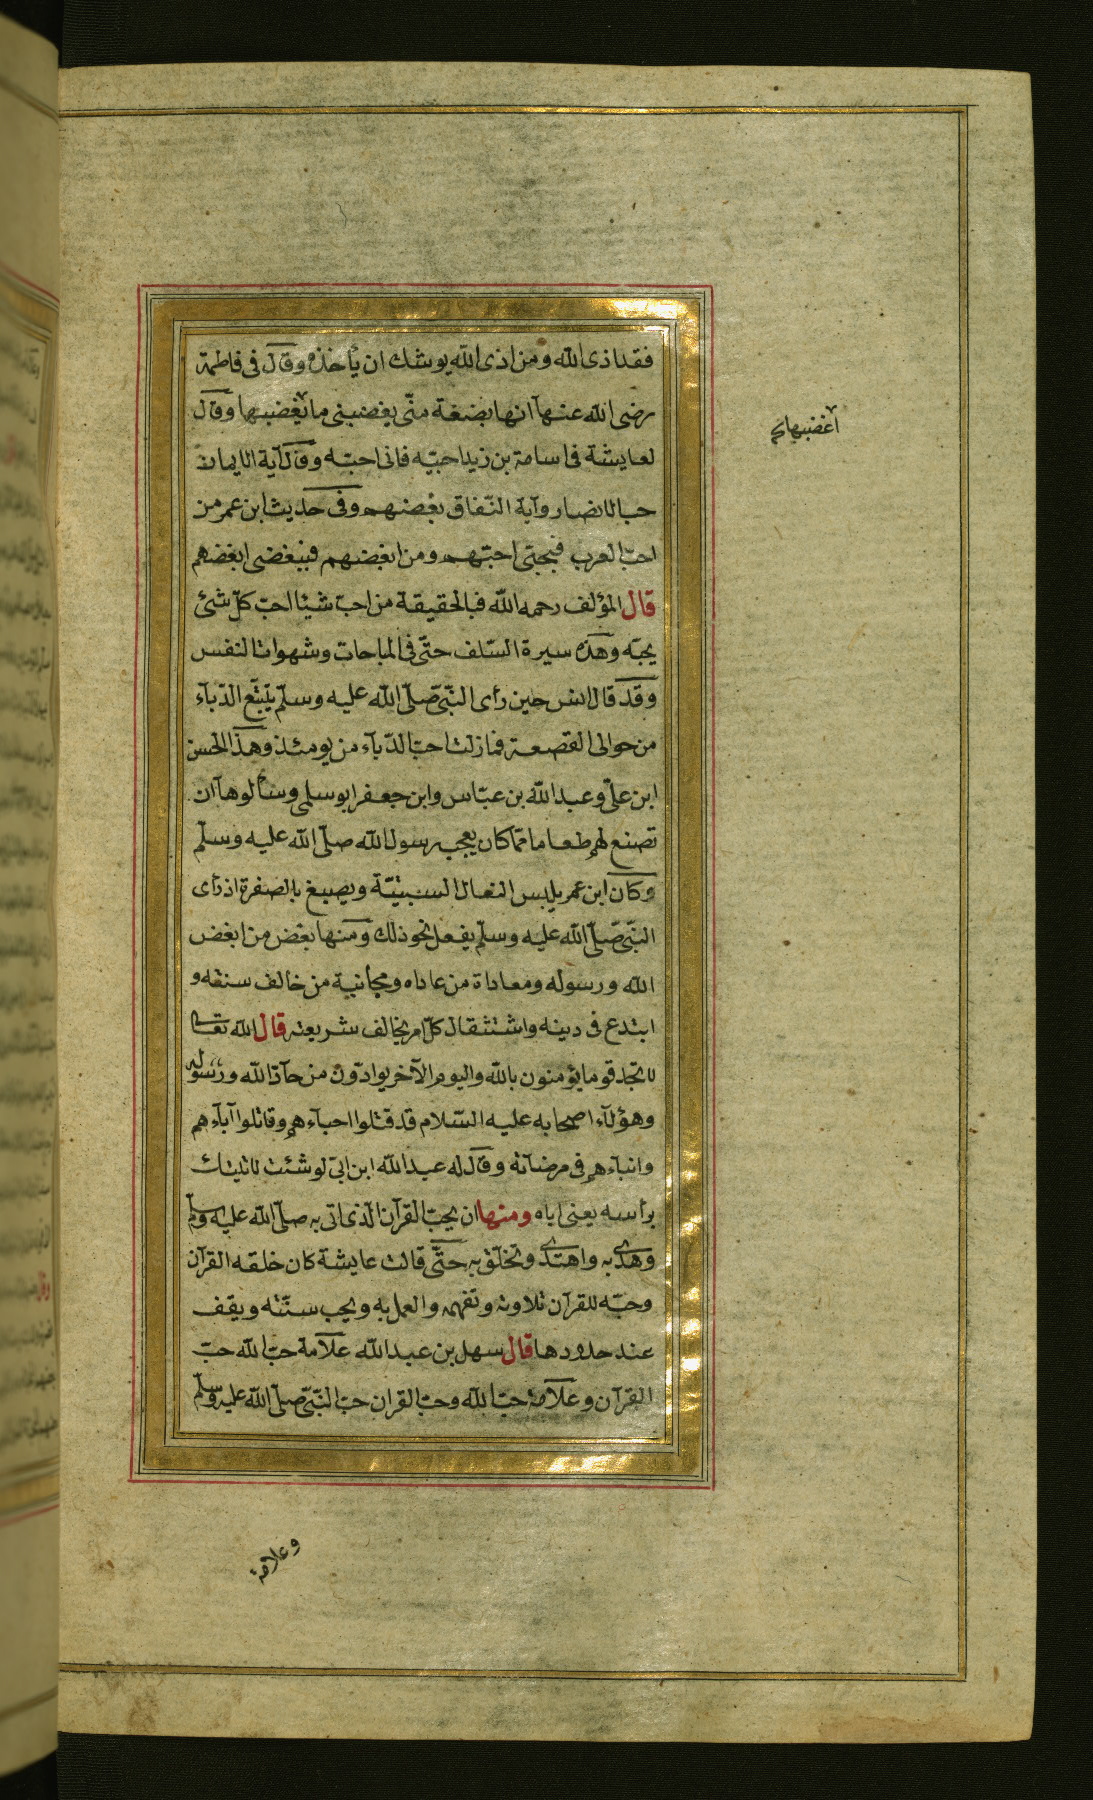 فقد اذى الله ومن اذى الله يوشك ان يأخذه وقال فى فاطمة
رضى الله عنها انها بضعة منّى يغضبنى ما يغضبها وقال
لعايشة فى اسامة بن زيد احبّيه فانى احبّه وقال آية الايمان
حب الانصار وآية النّفاق بغضهم وفى حديث ابن عمر من
احبّ العرب فبحبّى احبّهم ومن ابغضهم فببغضى ابغضهم
قال المؤلف رحمه الله فبالحقيقة من احبّ شيئا احبّ كلّ شئ
يحبّه وهذه سيرة السّلف حتّى فى المباحات وشهوات النفس
وقد قال انس حين رأى النّبىّ صلّى الله عليه وسلّم يتتبّع الدّبآء
من حوالى القصعة فما زلت احبّ الدّبآء من يومئذ وهذا الحسن
ابن علىّ وعبد الله بن عبّاس وابن جعفر اتوا سلمى وسألوها ان
تصنع لهم طعاما ممّا كان يعجب رسول الله صلّى الله عليه وسلّم
وكان ابن عمر يلبس النعال السبتيّة ويصبغ بالصفرة اذ رأى
النّبىّ صلّى الله عليه وسلّم يفعل نحو ذلك ومنها بغض من ابغض
الله ورسوله ومعاداة من عاداه ومجانبة من خالف سنته و
ابتدع فى دينه واستثقال كلّ امر يخالف شريعته قال الله تعالى
لا تجد قوما يؤمنون بالله واليوم الآخر يوادّون من حآدّ الله ورسوله
وهؤلآء اصحابه عليه السّلام قد قتلوا احبآءهم وقاتلوا آبآءهم
وابنآءهم فى مرضاته وقال له عبد الله ابن ابىّ لو شئت لاتيتك
برأسه يعنى اباه ومنها ان يحبّ القرآن الّذى اتى به صلّى الله عليه وسلّم
وهدى به واهتدى وتخلّق به حتّى قالت عايشة كان خلقه القرآن
وحبّه للقرآن تلاوته وتفهمه والعمل به ويحب سنّته ويقف
عند حدودها قال سهل بن عبد الله علامة حبّ الله حبّ
القرآن وعلامة حبّ الله وحبّ القران حبّ النّبىّ صلّى الله عليه وسلّم
اغضبها
وعلامة